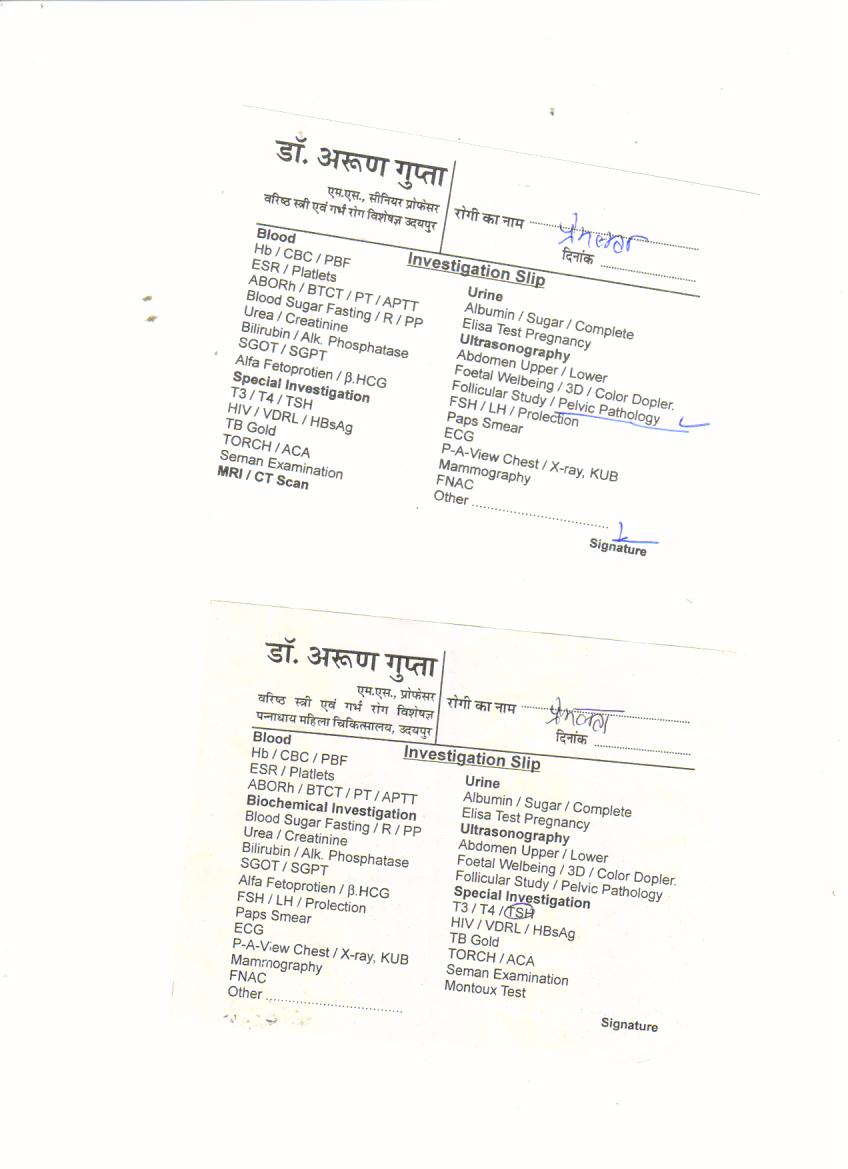 डॉ. अरूण गुप्ता
एम.एस., सीनियर प्रोफेसर
वरिष्ठ स्त्री एवं गर्भ रोग विशेषज्ञ उदयपुर
रोगी का नाम
दिनांक
Investigation Slip
Blood
Hb / CBC / PBF
ESR / Platlets
ABORh / BTCT / PT / APTT
Blood Sugar Fasting / R / PP
Urea / Creatinine
Bilirubin / Alk. Phosphatase
SGOT / SGPT
Alfa Fetoprotien / β.HCG
Special Investigation
T3 / T4 / TSH
HIV / VDRL / HBsAg
TB Gold
TORCH / ACA
Seman Examination
MRI / CT Scan
Urine
Albumin / Sugar / Complete
Elisa Test Pregnancy
Ultrasonography
Abdomen Upper / Lower
Foetal Welbeing / 3D / Color Dopler.
Follicular Study / Pelvic Pathology
FSH / LH / Prolection
Paps Smear
ECG
P-A-View Chest / X-ray, KUB
Mammography
FNAC
Other
Signature
डॉ. अरूण गुप्ता
एम.एस., प्रोफेसर
वरिष्ठ स्त्री एवं गर्भ रोग विशेषज्ञ
पन्नाधाय महिला चिकित्सालय, उदयपुर
रोगी का नाम
दिनांक
Investigation Slip
Blood
Hb / CBC / PBF
ESR / Platlets
ABORh / BTCT / PT / APTT
Biochemical Investigation
Blood Sugar Fasting / R / PP
Urea / Creatinine
Bilirubin / Alk. Phosphatase
SGOT / SGPT
Alfa Fetoprotien / β.HCG
FSH / LH / Prolection
Paps Smear
ECG
P-A-View Chest / X-ray, KUB
Mammography
FNAC
Other
Urine
Albumin / Sugar / Complete
Elisa Test Pregnancy
Ultrasonography
Abdomen Upper / Lower
Foetal Welbeing / 3D / Color Dopler.
Follicular Study / Pelvic Pathology
Special Investigation
T3 / T4 / TSH
HIV / VDRL / HBsAg
TB Gold
TORCH / ACA
Seman Examination
Montoux Test
Signature